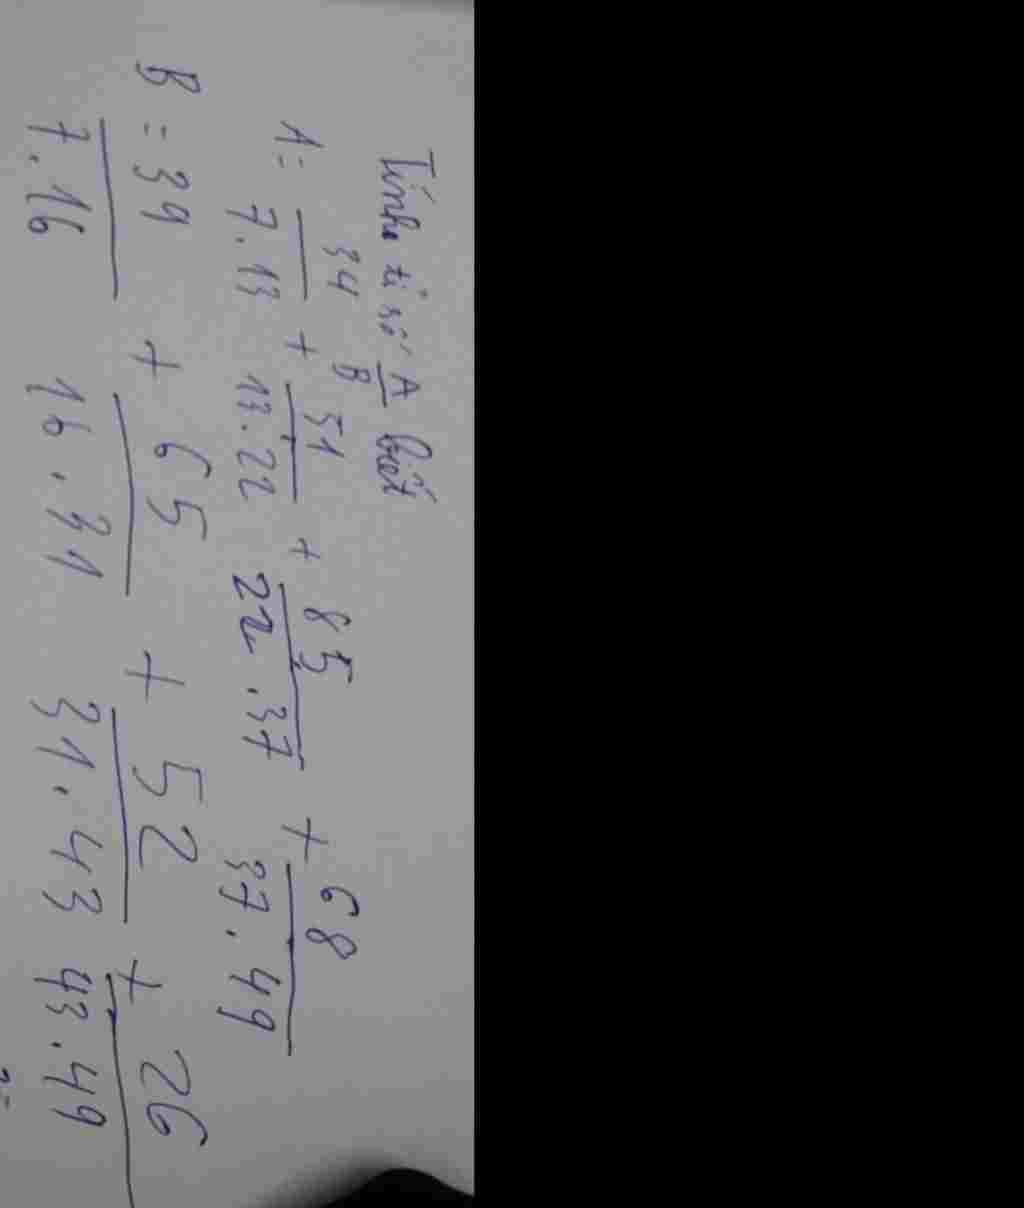 Tính tỉ số A/B biết
A = 34/7.13 + 51/13.22 + 85/22.37 + 68/37.49
B = 39/7.16 + 65/16.31 + 52/31.43 + 26/43.49